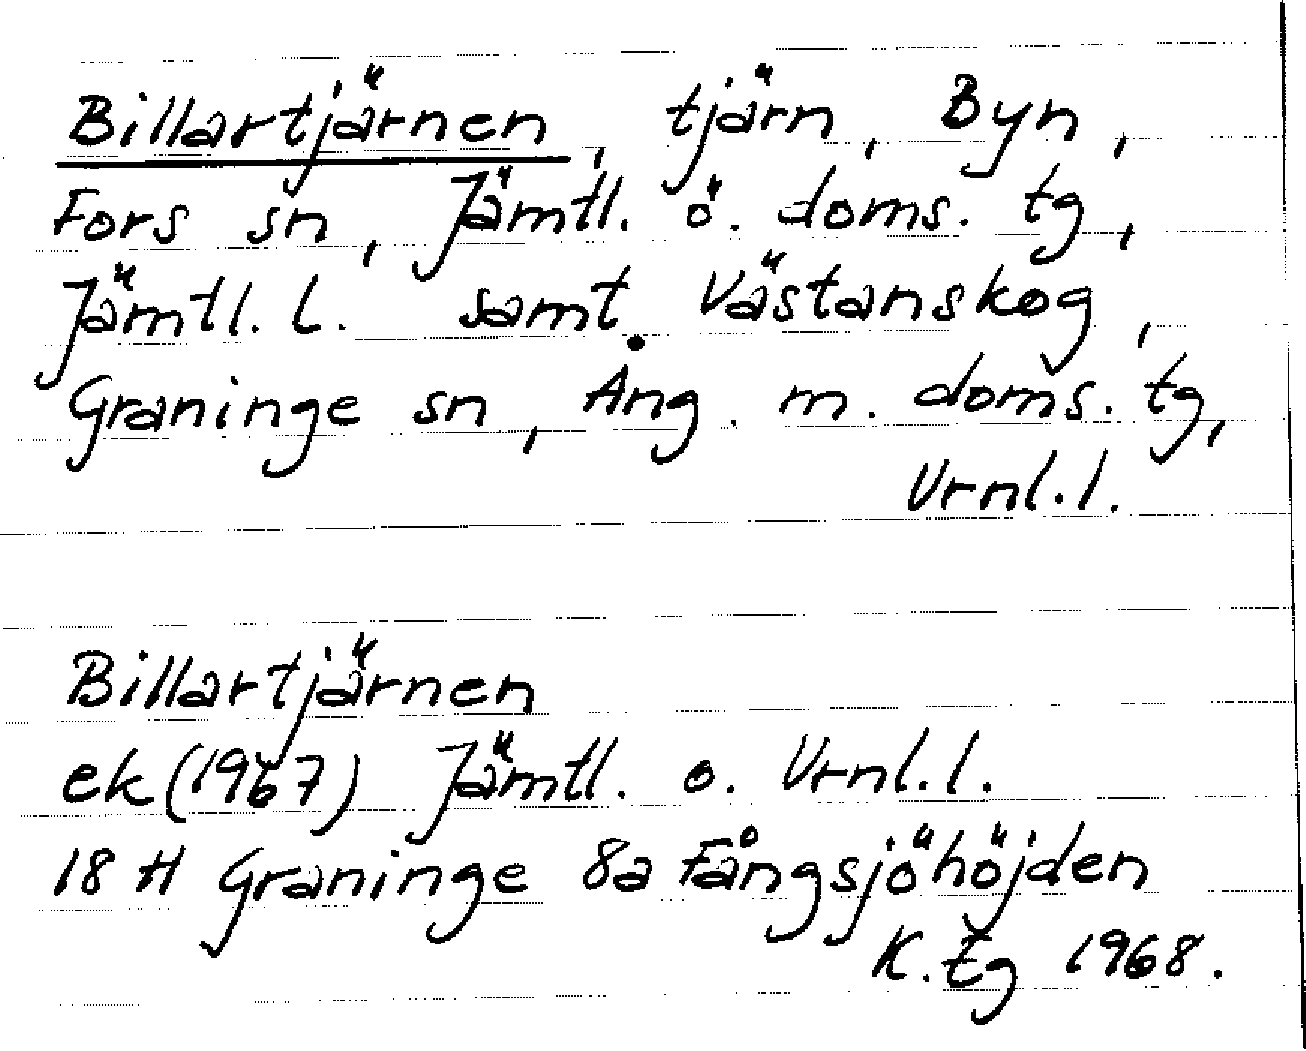 Billartjärnen, tjärn, Byn,
Fors sn, Jämtl. ö. doms. tg,
Jämtl. l. samt Västanskog,
Graninge sn, Ång. m. doms. tg,
Vrnl. l.
Billartjärnen
ek (1967) Jämtl. o. Vrnl. l.
18 H Graninge 8a Fångsjöhöjden
K. tg 1968.